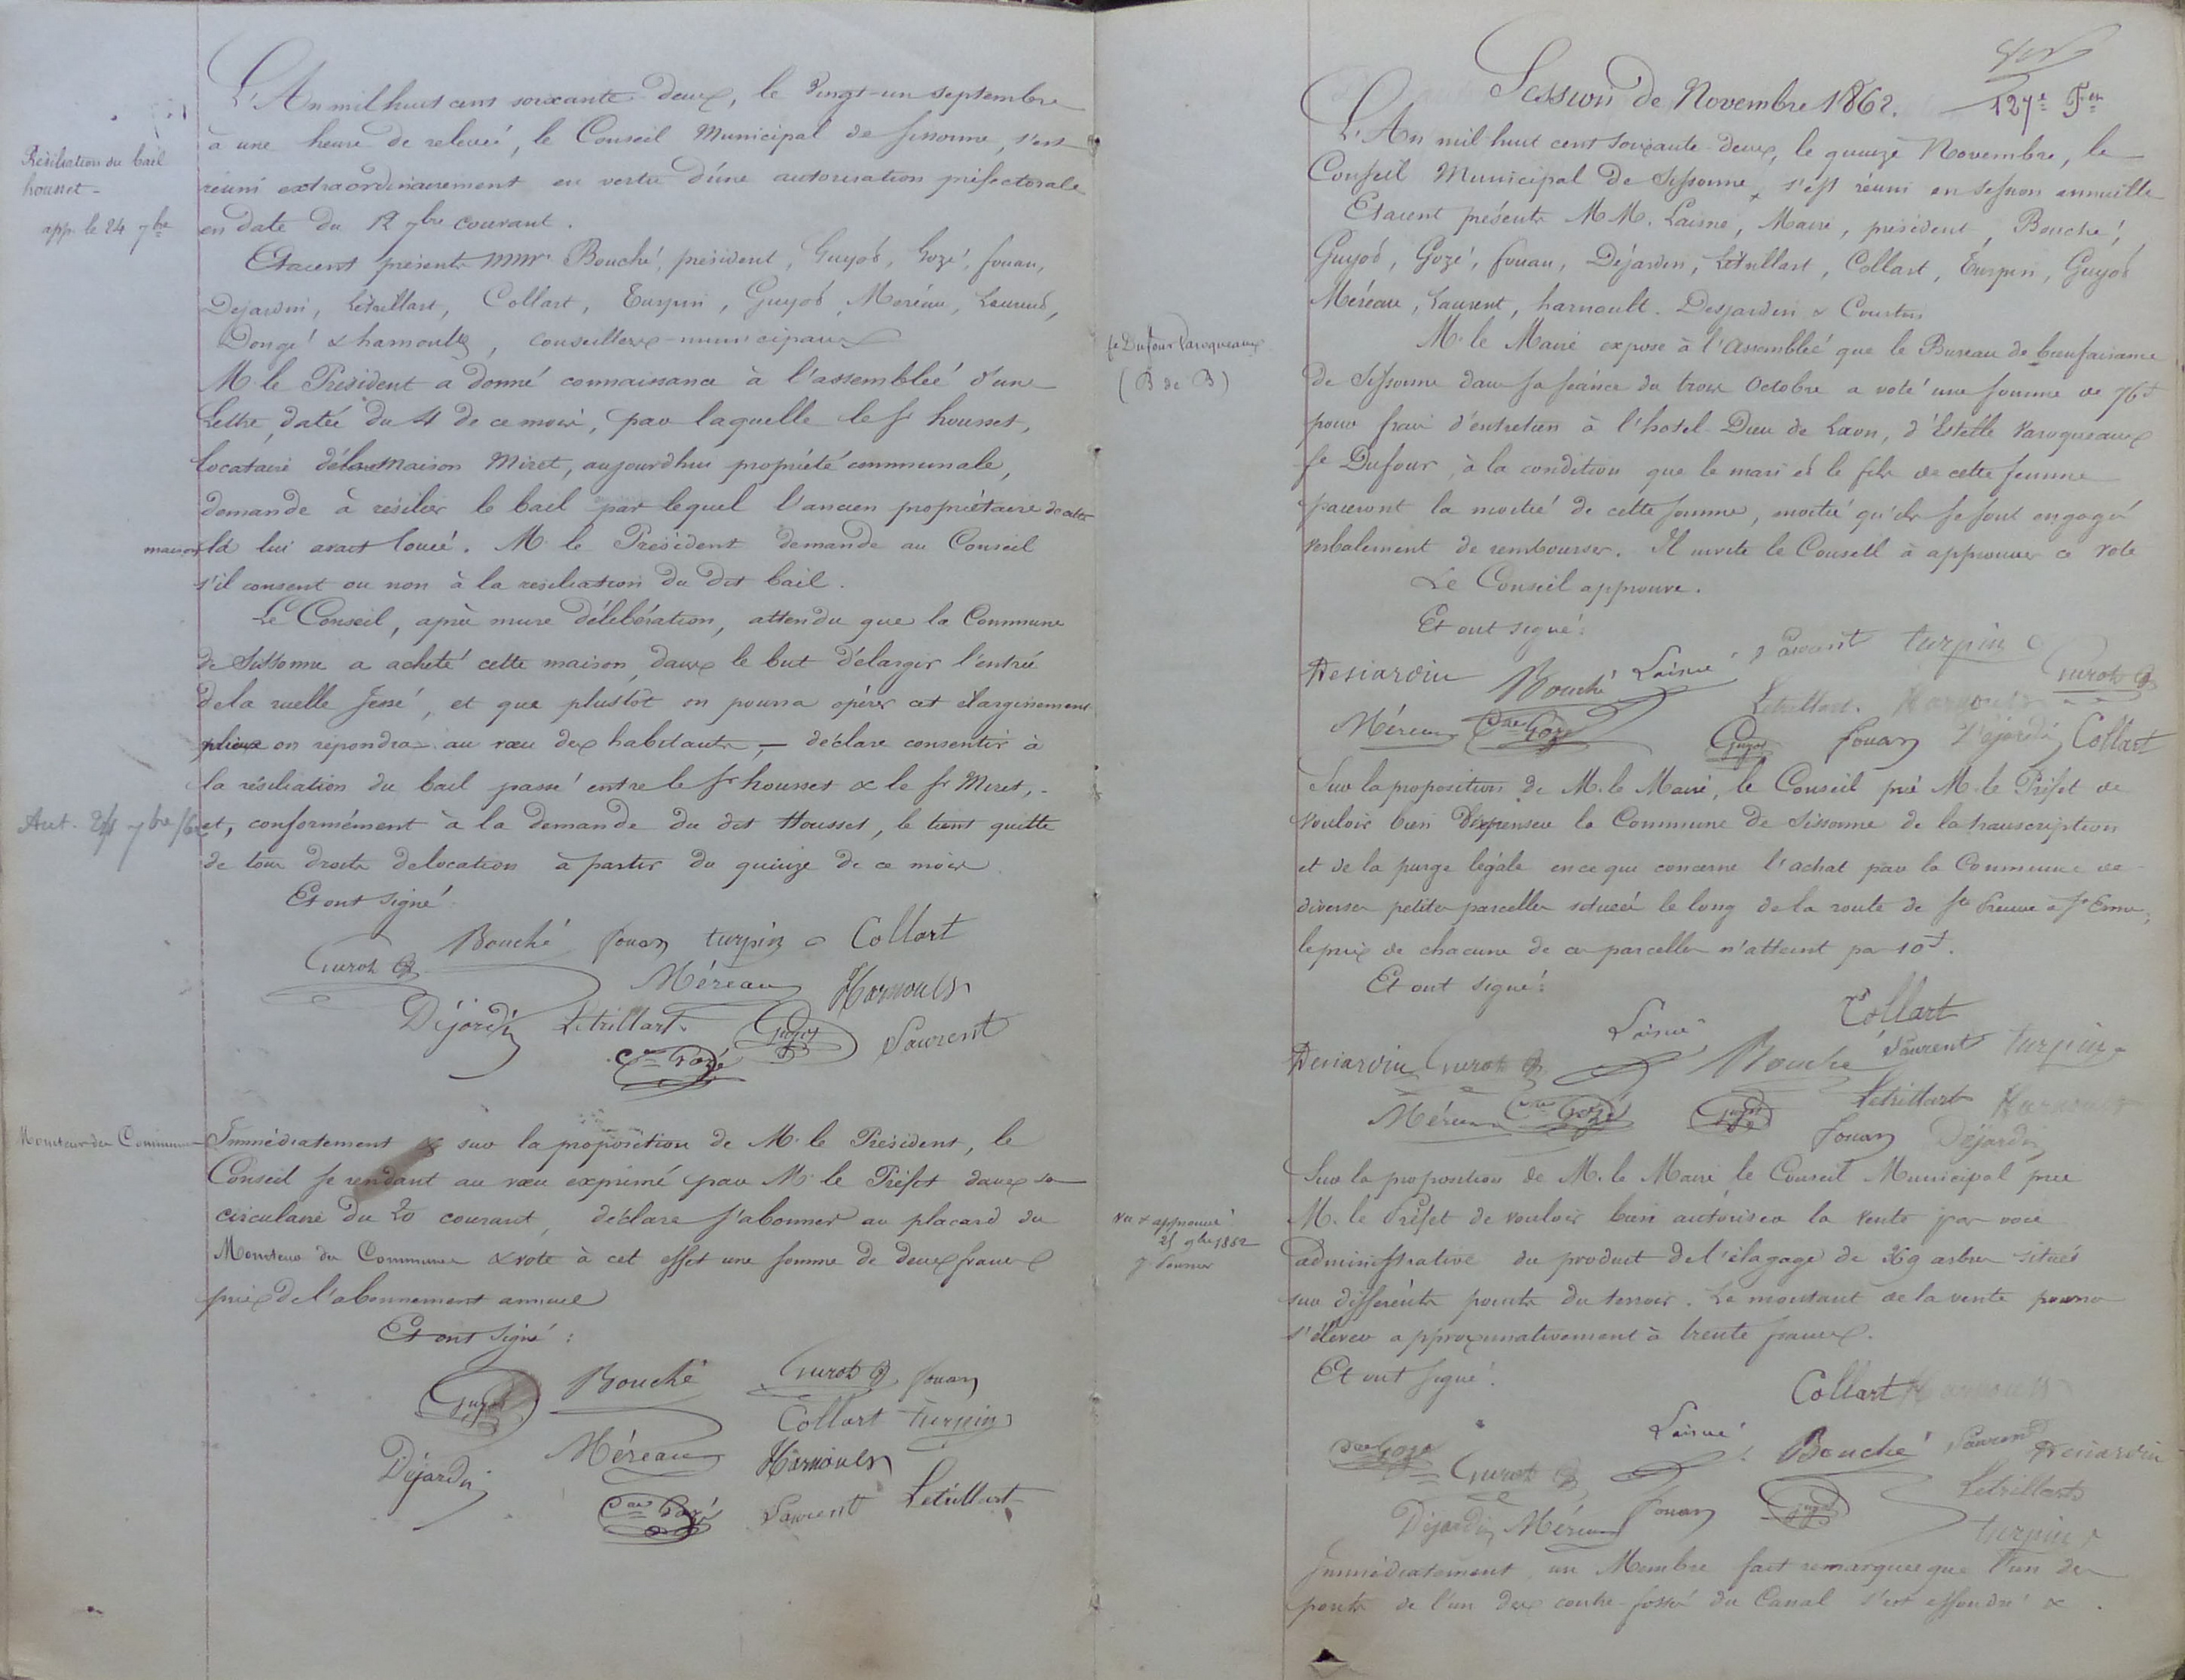 L'An mil huit cent soixante-deux, le vingt-un septembre
à une heure de relevée, le Conseil Municipal de Sissonne, s'est
Résiliation du bail
housset -
app. le 24 7bre
réuni extraordinairement en vertu d'une autorisation préfectorale
en date du 12 7bre courant.
Etaient présents MMrs Bouché, président, Guyot, Gozé, fouan,
Dejardin, Létrillart, Collart, Turpin, Guyot, Méreau, Laurent,
Dongé & harnoult, conseillers-municipaux
M. le Président a donné connaissance à l'assemblée d'une
Lettre, datée du 4 de ce mois, par laquelle le sr housset,
locataire de la Maison Miret, aujourd'hui propriété communale,
demande à résilier le bail par lequel l'ancien propriétaire de cette
maison la lui avait louée. M. le Président demande au Conseil
s'il consent ou non à la résiliation du dit bail.
Le Conseil, après mure délébération, attendu que la Commune
de Sissonne a acheté cette maison, dans le but d'élargir l'entrée
de la ruelle Jessé, et que plustôt on pourra opérer cet élargissement
mieux on répondra au vœu des habitants, - déclare consentir à
la résiliation du bail passé entre le sr housset & le sr Miret, -
Aut. 24 7bre/62
et, conformément à la demande du dit Housset, le tient quitte
de tous droits de location à partir du quinze de ce mois
Et ont signé
Bouché fouan turpin Collart
Gurot Méreau Harnoult
Déjardin Letrillart Guyot Laurent
Gozé
Moniteur des Communes
Immédiatement & sur la proposition de M. le Président, le
Conseil se rendant au vœu exprimé par M. le Préfet dans sa
circulaire du 20 courant, déclare s'abonner au placard du
Moniteur des Communes & vote à cet effet une somme de deux francs
prix de l'abonnement annuel
Et ont signé :
Guyot Bouché Gurot fouan
Collart turpin
Déjardin Méreau Harnoult
Gozé Laurent Letrillart
Session de Novembre 1862.
127e
L'An mil huit cent soixante-deux, le quinze Novembre, le
Conseil Municipal de Sissonne, s'est réuni en session annuelle
Etaient présents MM. Lainé, Maire, président, Bouché,
Guyot, Gozé, fouan, Déjardin, Létrillart, Collart, Turpin, Guyot
Méreau, Laurent, harnoult. Desjardin & Courtin
fe Dufour Varoqueaux
(B de B)
M. le Maire expose à l'Assemblée que le Bureau de bienfaisance
de Sissonne dans sa séance du trois Octobre a voté une somme de 76f
pour frais d'entretien à l'hotel-Dieu de Laon, d'Estelle Varoqueaux
fe Dufour, à la condition que le mari et le fils de cette femme
paieront la moitié de cette somme, moitié qu'ils se sont engagés
verbalement de rembourser. Il invite le Conseil à approuver ce vote
Le Conseil approuve.
Et ont signé :
Desjardin Bouché Lainé Laurent turpin
Gurot
Méreau Gozé Letrillart Harnoult
Guyot fouan Déjardin Collart
Sur la proposition de M. le Maire, le Conseil prie M. le Préfet de
vouloir bien dispenser la Commune de Sissonne de la transcription
et de la purge légale en ce qui concerne l'achat par la Commune de
diverses petites parcelles situées le long de la route de Ste Preuve à St Erme,
le prix de chacune de ces parcelles n'atteint pas 10f.
Et ont signé :
Collart
Lainé
Desjardin Gurot Bouché Laurent turpin
Méreau Gozé Guyot Letrillart Harnoult
fouan Déjardin
Sur la proposition de M. le Maire, le Conseil Municipal prie
vu & approuvé
25 9bre 1862
M. le Préfet de vouloir bien autoriser la vente par voie
administrative du produit de l'élagage de 369 arbres situés
sur différents points du terroir. Le montant de la vente pourra
s'élever approximativement à trente francs.
Et ont signé :
Collart Harnoult
Gozé Lainé Bouché Laurent Desjardin
Gurot Letrillart
Déjardin Méreau fouan Guyot
turpin
Immédiatement, un Membre fait remarquer que l'un des
ponts de l'un des contre-fossés du Canal s'est effondré &